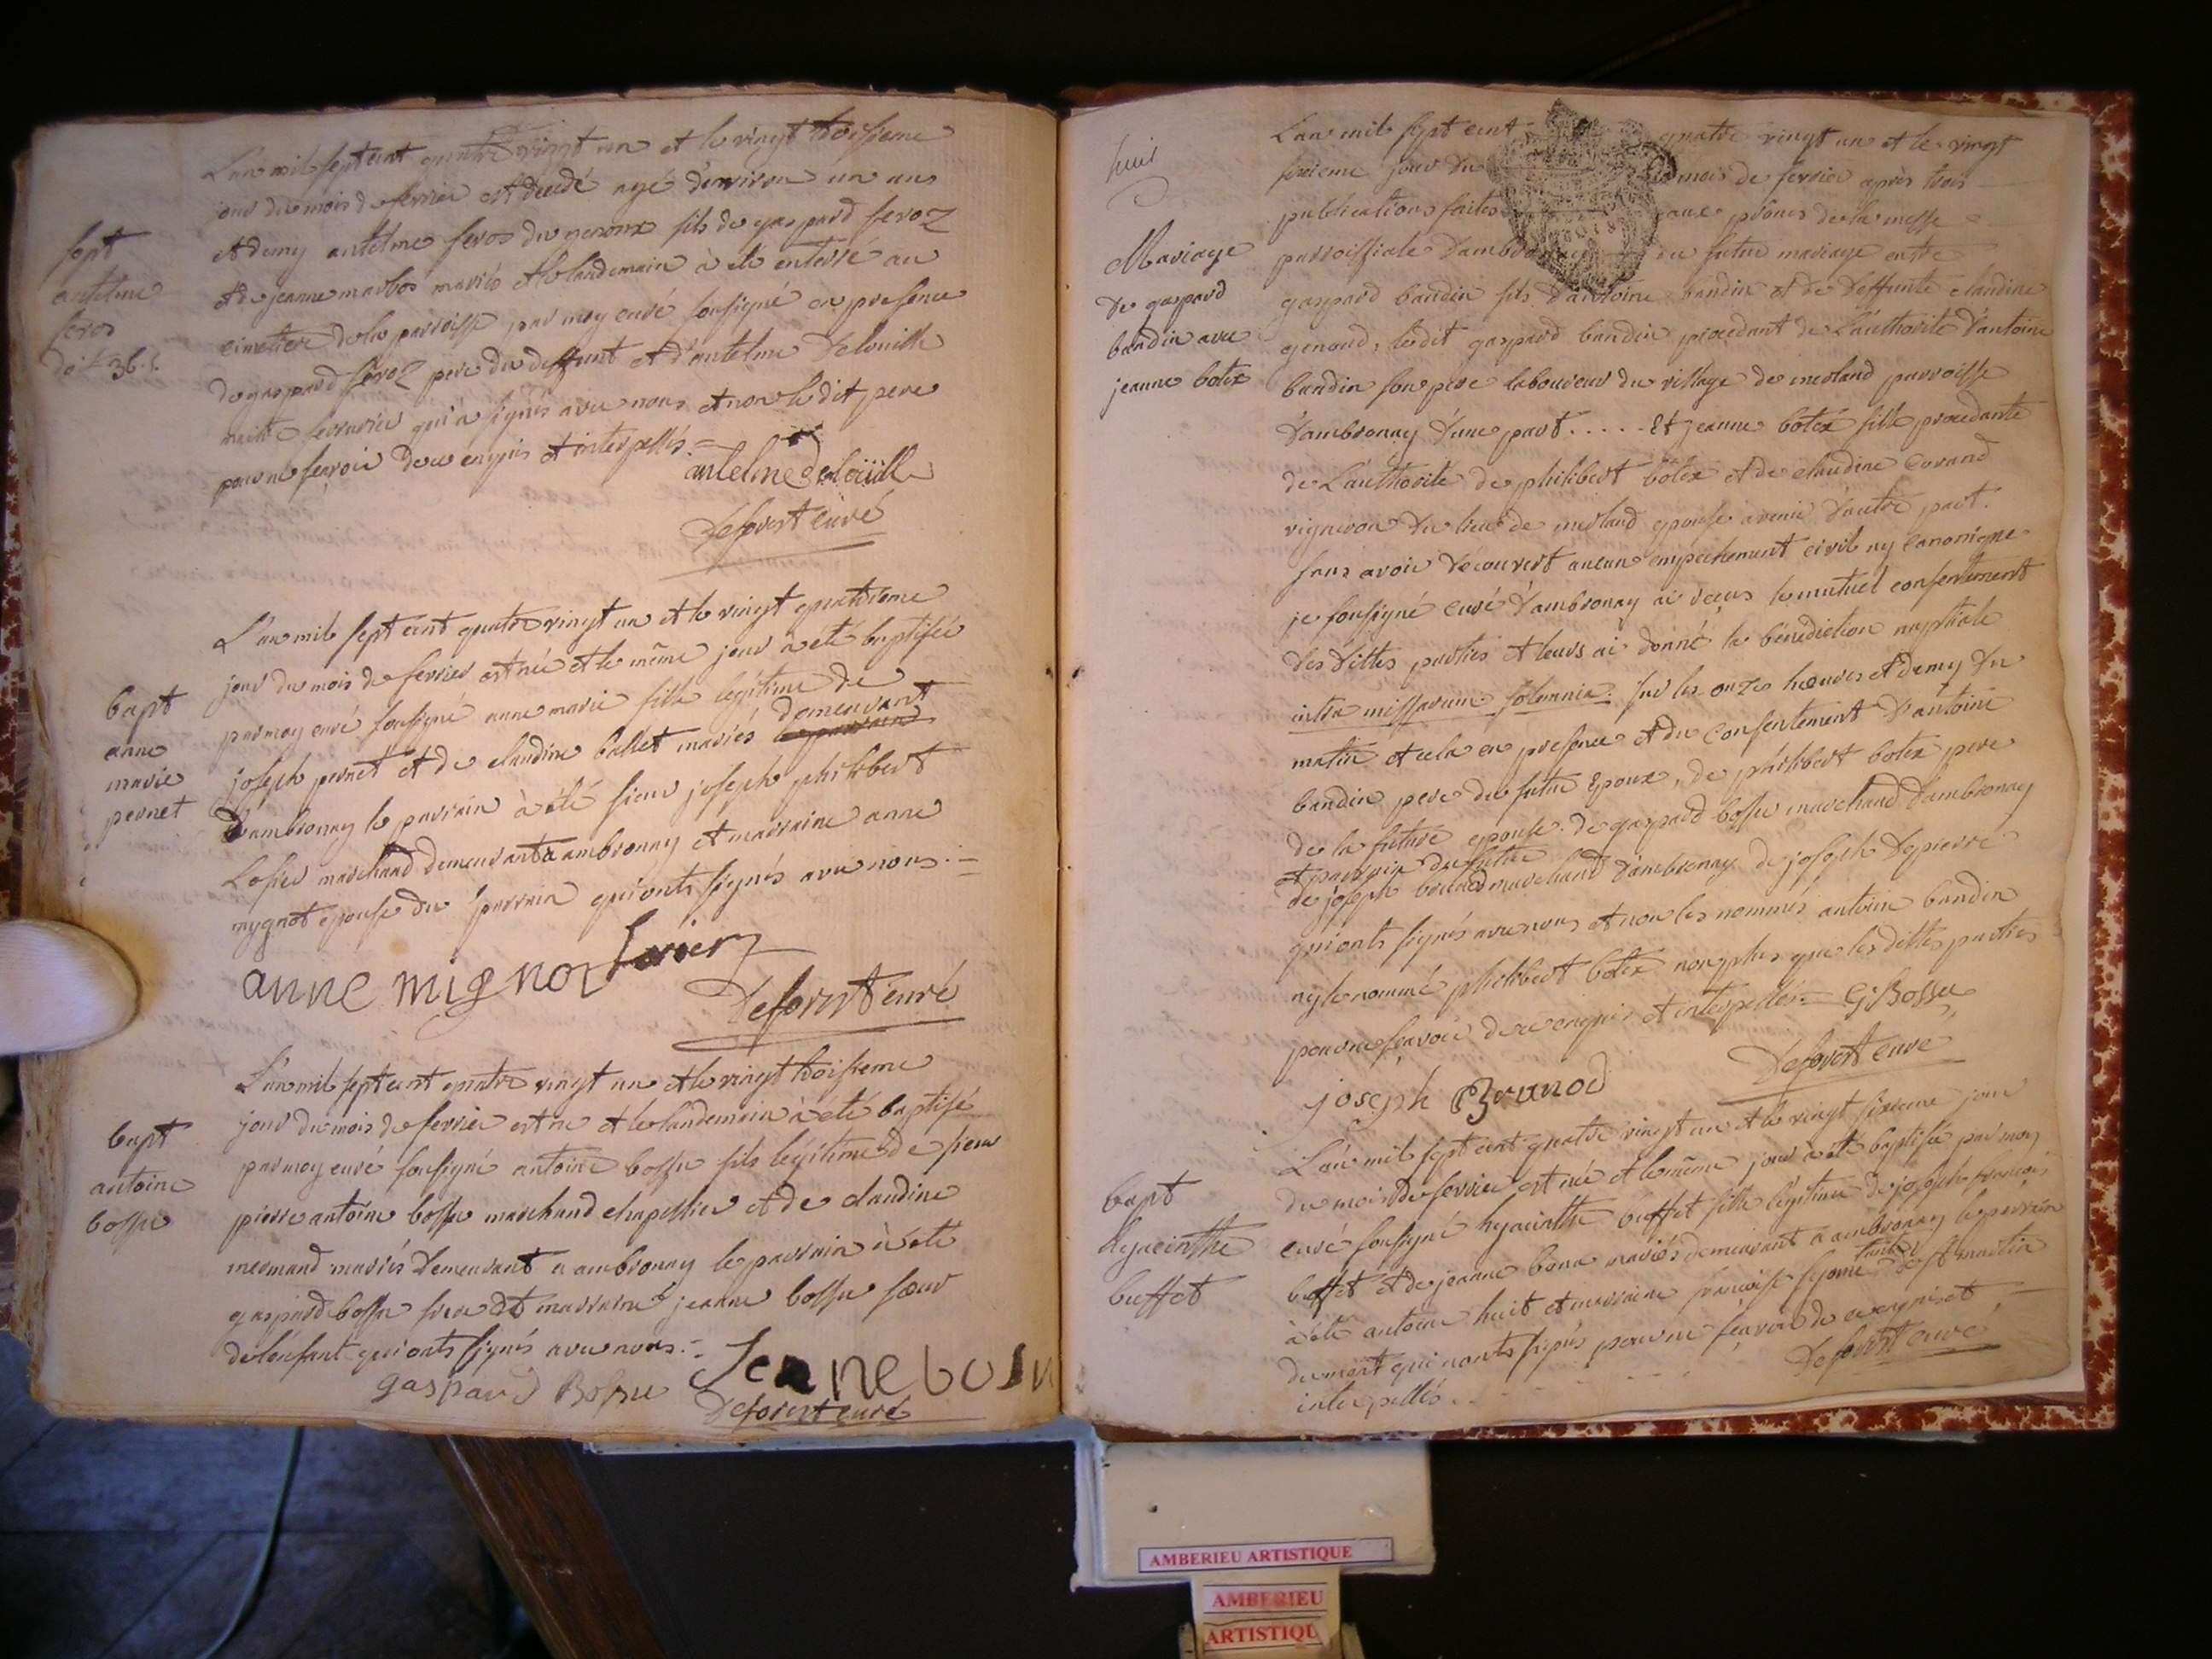 L'an mil sept cent quatre vingt un et le vingt troisieme
jour du mois de fevrier est decedé agé d'environ un ans
et demy antelme feroz du genoux fils de gaspard feroz
et de jeanne marbos mariés et le landemain à eté enterré au
cimetiere de la parroisse par moy curé soussigné en presence
de gaspard feroz pere du deffunt et d'antelme Delouille
maitre serrurier qui à signés avec nous et non le dit pere
pour ne sçavoir de ce enquis et interpellés =
antelme delouille
Deforest curé
sept
antelme
feros
do.t 36.s.
L'an mil sept cent quatre vingt un et le vingt quatrieme
jour du mois de fevrier est née et le même jour à eté baptisée
par moy curé soussigné anne marie fille legitime de
joseph pernet et de claudine ballet mariés demeurant
D'ambronay le parrain à eté sieur joseph philibert
marchand demeurant a ambronay et marraine anne
mygnot epouse du parrain qui onts signés avec nous. =
bapt
anne
marie
pernet
anne mignot
Deforest curé
L'an mil sept cent quatre vingt un et le vingt troisieme
jour du mois de fevrier est né et le landemain à eté baptisé
par moy curé soussigné antoine bossu fils legitime de sieur
pierre antoine bossu marchand chapellier et de claudine
mermand mariés demeurant a ambronay le parrain à eté
gaspard bossu frere et marraine jeanne bossu sœur
de l'enfant qui onts signés avec nous. =
bapt
antoine
bossu
gaspard Bossu
Jeanne bosu
Deforest curé
huit
L'an mil sept cent quatre vingt un et le vingt
sixieme jour du mois de fevrier après trois
publications faites aux prônes de la messe
parroissiale d'ambronay du futur mariage entre
gaspard baudin fils d'antoine baudin et de deffunte claudine
genoud, ledit gaspard baudin procedant de L'authorite d'antoine
baudin son pere laboureur du village de merland parroisse
d'ambronay d'une part ..... Et jeanne botex fille procedante
de L'authorite de philibert botex et de claudine Curand
vigneron du lieu de merland epouse avenir d'autre part.
sans avoir découvert aucun empechement civil ny canonique
je soussigné curé d'ambronay ai reçus le mutuel consentement
des dittes parties et leurs ai donné la bénediction nuptiale
intra missarum solemnia. sur les onze heures et demy du
matin et cela en presence et du consentement d'antoine
baudin pere du futur Epoux, de philibert botex pere
de la future epouse. de gaspard bossu marchand d'ambronay
et parrain du futur
de joseph brunod marchand d'ambronay de joseph Depierre
qui onts signés avec nous et non les nommés antoine baudin
ny le nommé philibert botex non plus que les dittes parties
pour ne sçavoir de ce enquis et interpellés = G. Bossu
Mariage
de gaspard
baudin avec
jeanne botex
joseph Brunod
Deforest curé
L'an mil sept cent quatre vingt un et le vingt sixieme jour
du mois de fevrier est née et le même jour à eté baptisée par moy
curé soussigné hyacinthe buffet fille légitime de joseph françois
buffet et de jeanne bona mariés demeurant a ambronay le parrain
à eté antoine huit et marraine françoise tante de st martin
du mont qui n'onts signés pour ne sçavoir de ce enquis et
interpellés..
bapt
hyacinthe
buffet
Deforest curé
AMBERIEU ARTISTIQUE
AMBERIEU
ARTISTIQU